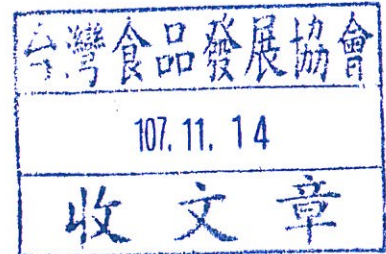 台灣食品發展協會
107. 11. 14
收文章